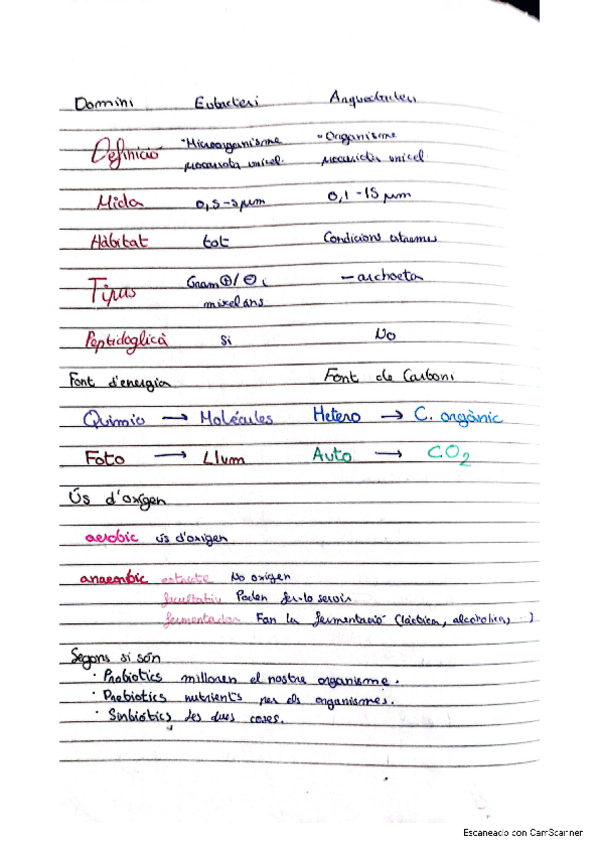 Domini Eubacteri Arqueobacteri
Definició "Microorganisme "Organisme
procariota unicel. procariota unicel
Mida 0,5-5µm 0,1-15µm
Hàbitat tot Condicions extremes
Tipus Gram⊕/⊖ i - archaeta
mixelans
Peptidoglicà Si No
Font d'energia Font de Carboni
Quimio → Molécules Hetero → C. orgànic
Foto → Llum Auto → CO2
Ús d'oxígen
aerobic ús d'oxigen
anaerobic estricte No oxígen
facultatiu Poden fer-lo servir
fermentador Fan la fermentació (làctica, alcoholica, ..)
Segons si són
· Probiotics milloren el nostre organisme.
· Prebiotics nutrients per els organismes.
· Simbiòtics les dues coses.
Escaneado con CamScanner